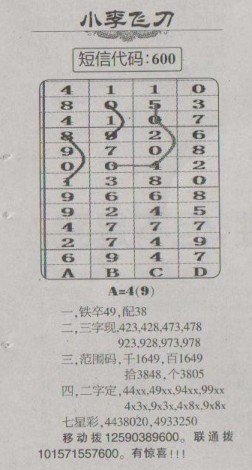 小李飞刀
短信代码:600
4 1 1 0
8 0 5 3
4 1 0 7
8 9 2 6
9 7 0 8
0 0 4 2
1 3 8 0
9 6 6 8
9 2 4 5
4 7 7 7
2 7 4 9
6 9 4 7
A B C D
A=4(9)
一,铁卒49,配38
二,三字现,423,428,473,478
923,928,973,978
三,范围码,千1649,百1649
拾3848,个3805
四,二字定,44xx,49xx,94xx,99xx
4x3x,9x3x,4x8x,9x8x
七星彩,4438020,4933250
移动拨12590389600。联通拨
101571557600。有惊喜!!!